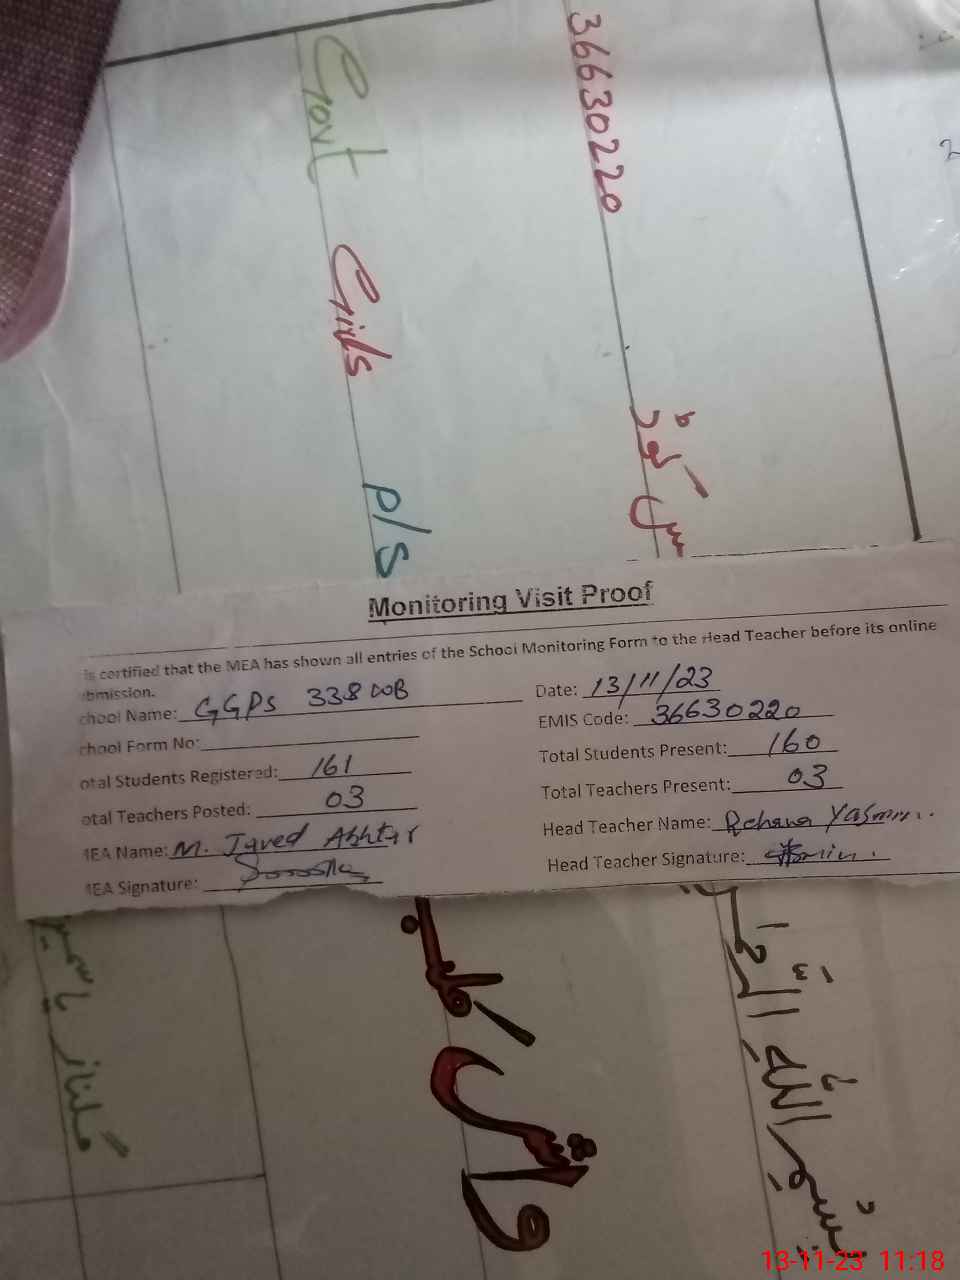 36630220
Govt Girls P/S
Monitoring Visit Proof
is certified that the MEA has shown all entries of the School Monitoring Form to the Head Teacher before its online
bmission.
chool Name: GGPS 338 WB
Date: 13/11/23
chool Form No:
EMIS Code: 36630220
otal Students Registered: 161
Total Students Present: 160
otal Teachers Posted: 03
Total Teachers Present: 03
MEA Name: M. Javed Akhtar
Head Teacher Name: Rehana Yasmin
MEA Signature:
Head Teacher Signature:
بسم اللہ
گلناز یاسمین
13-11-23 11:18